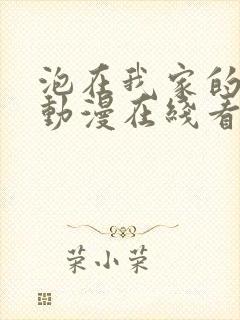 泡在我家的
動漫在綫看
荣小荣